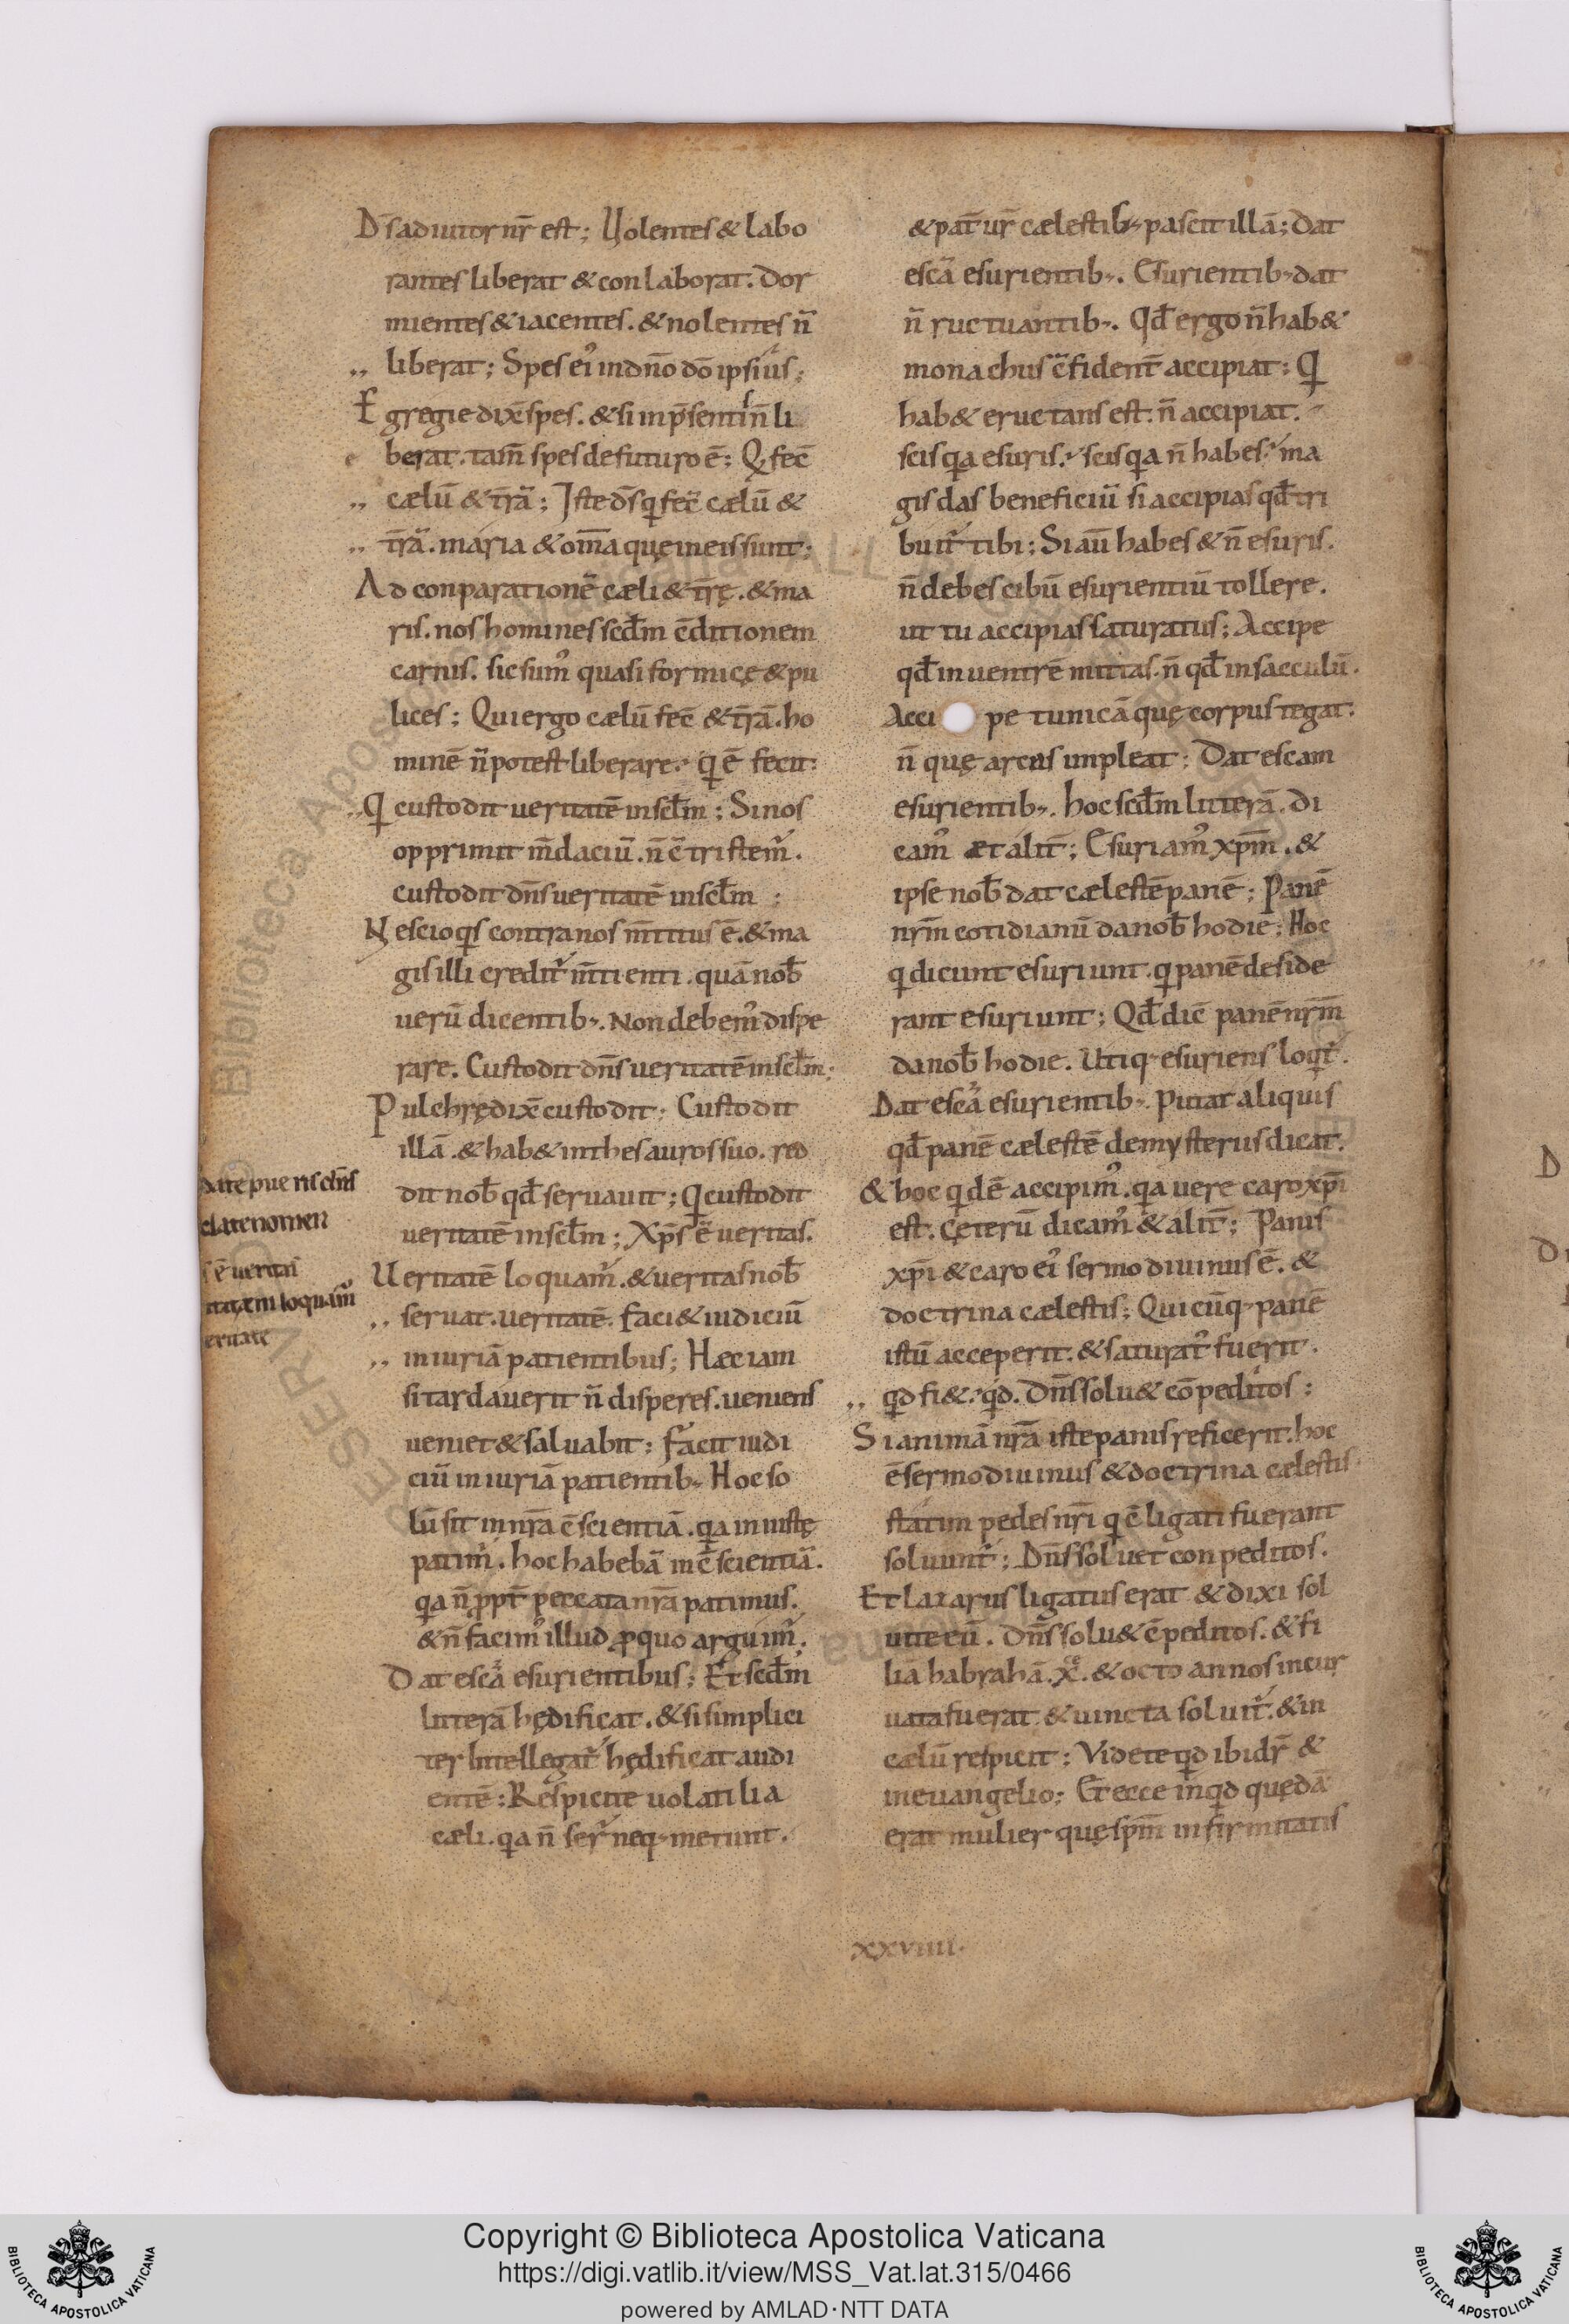 Dñs adiutor nr̄ est; Uolentes & labo
rantes liberat & conlaborat. Dor
mientes & iacentes. & nolentes n̄
liberat; Spes ei᾽ in dn̄o dō ipsius;
Egregie dix̄ spes. & si in p̄senti n̄ li
berat. tam̄ spes de futuro ē; Q̣ fec̄
cælū & tr̄ā; Iste d̄s q̣ fec̄ cælū &
tr̄ā. maria & om̄a quę in eis sunt;
Ad conparationē cæli & tr̄ę. & ma
ris. nos homines scđm c̄ditionem
carnis. sic sum᾽ quasi formicę & pu
lices; Qui ergo cælū fec̄ & tr̄ā. ho
minē n̄ potest liberare. quē fecit:
Q̣ custodit ueritatē in sclm̄; Si nos
opprimit m̄daciū. n̄ c̄tristem᾽.
custodit dn̄s ueritatē in sclm̄;
Nescio q̣s contra nos m̄titus ē. & ma
gis illi credit᾽ m̄tienti. quā nob̄
uerū dicentib;. Non debem᾽ dispe
rare. Custodit dn̄s ueritatē in sclm̄;
Pulchrę dix̄ custodit; Custodit
illā. & hab& in thesauros suo. red
dit nob̄ qđ seruauit; Q̣ custodit
ueritatē in sclm̄; Xp̄s ē ueritas.
Ueritatē loquam᾽. & ueritas nob̄
seruat. ueritatē. faci& iudiciū
iniuriā patientibus; Hæc iam
si tardauerit n̄ disperes. ueniens
ueniet & saluabit; Facit iudi
ciū iniuriā patientib; Hoc so
lū sit in nr̄a c̄scientiā. q̣a iniustę
patim᾽. hoc habebā in c̄scientiā.
q̣a n̄ ppt̄ peccata nr̄a patimus.
& n̄ facim᾽ illud p̱ quo arguim᾽.
Dat escā esurientibus; Et scđm
litterā hędificat. & si simplici
ter intellegat᾽ hędificat audi
entē: Respicite uolatilia
cæli. q̣a n̄ ser᾽ neq; metunt.
& pat̄ ur̄ cælestib; pascit illā; Dat
escā esurientib;. Esurientib; dat
n̄ ructuantib;. Qđ ergo n̄ hab&
monachus c̄fident̄ accipiat: Q̣
hab& eructans est. n̄ accipiat.
scis q̣a esuris. scis q̣a n̄ habes. ma
gis das beneficiū si accipias qđ tri
buit᾽ tibi; Si aū habes & n̄ esuris.
n̄ debes cibū esurientiū tollere.
ut tu accipias saturatus; Accipe
qđ in uentrē mittas. n̄ qđ in sacculū.
Acci pe tunicā quę corpus tegat:
n̄ quę arcas impleat; Dat escam
esurientib;. hoc scđm litterā. di
cam᾽ et alit̄; Esuriam᾽ xp̄m. &
ipse nob̄ dat cælestē panē; Panē
nrm̄ cotidianū da nob̄ hodie; Hoc
q̣ dicunt esuriunt. q̣ panē deside
rant esuriunt; Qđ dic̄ panē nrm̄
da nob̄ hodie. Utiq; esuriens loq̣t᾽.
Dat escā esurientib;. Putat aliquis
qđ panē cælestē de mysteriis dicat.
& hoc q̣dē accipim᾽. q̣a uere caro xp̄i
est. Ceterū dicam᾽ & alit̄; Panis
xp̄i & caro ei᾽ sermo diuinus ē. &
doctrina cælestis; Qui cūq; panē
istū acceperit. & saturat᾽ fuerit.
q̣d fi& q̣d. Dn̄s solu& cō peditos:
Si animā nr̄ā iste panis reficerit. hoc
ē sermo diuinus & doctrina cælestis.
statim pedes nr̄i q̣ c̄ligati fuerant
soluunt᾽; Dn̄s soluet conpeditos.
Et lazarus ligatus erat & dixi sol
uite eū. Dn̄s solu& c̄peditos. & fi
liā habrahā. x̊. & octo annos incur
uata fuerat. & uincta soluit᾽. & in
cælū respicit; Videte q̣d ibi dr̄ &
in euangelio; Et ecce inq̣d quędā
erat mulier quę spm̄ infirmitatis
xxviiii.